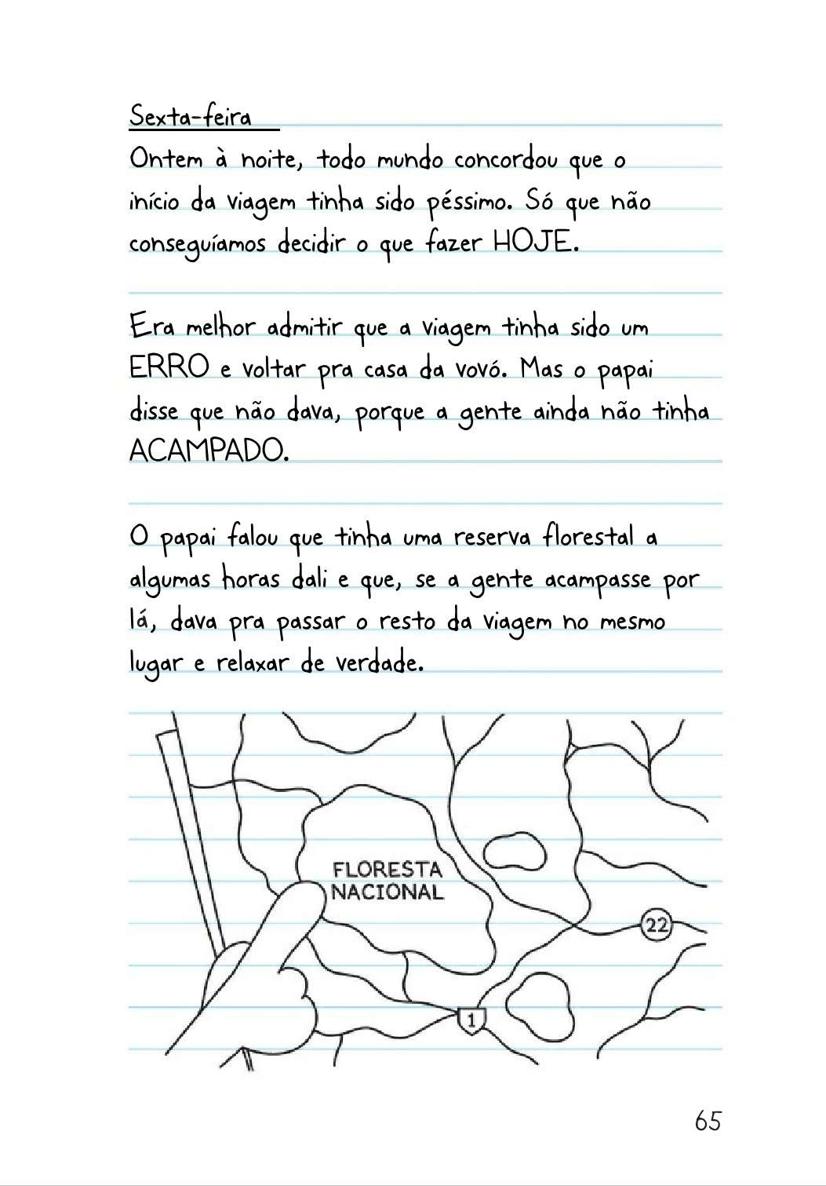 Sexta-feira
Ontem à noite, todo mundo concordou que o
início da viagem tinha sido péssimo. Só que não
conseguíamos decidir o que fazer HOJE.
Era melhor admitir que a viagem tinha sido um
ERRO e voltar pra casa da vovó. Mas o papai
disse que não dava, porque a gente ainda não tinha
ACAMPADO.
O papai falou que tinha uma reserva florestal a
algumas horas dali e que, se a gente acampasse por
lá, dava pra passar o resto da viagem no mesmo
lugar e relaxar de verdade.
FLORESTA
NACIONAL
22
1
65